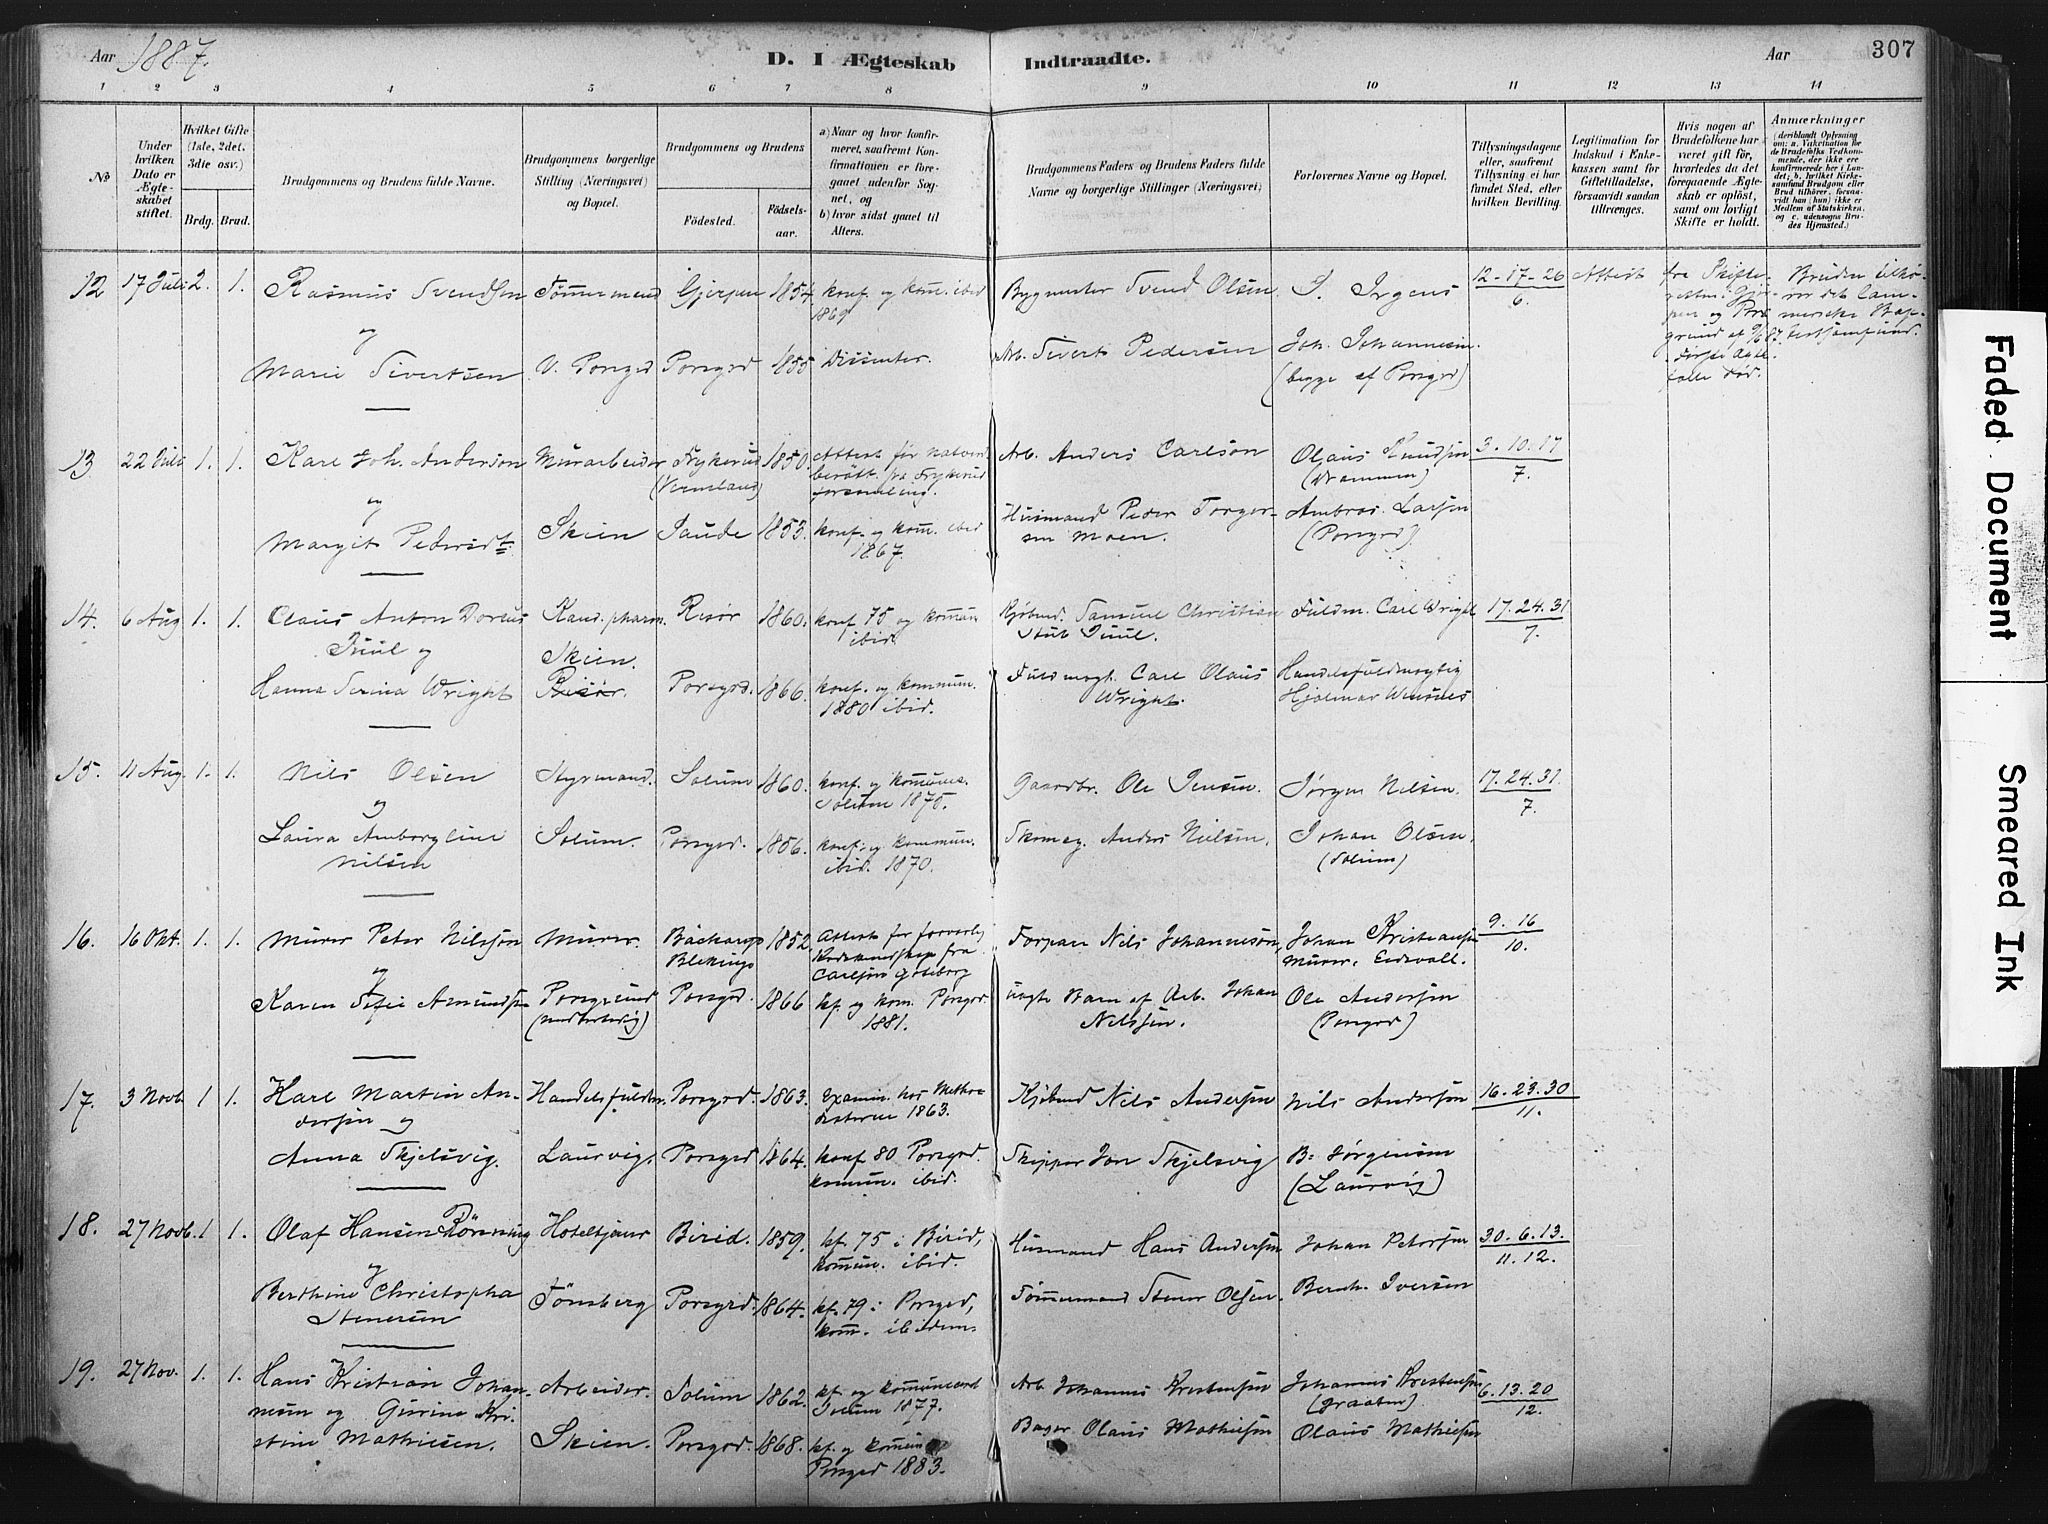 Aar 1887.
D. I Ægteskab Indtraadte.
Aar
307
1 2 3 4 5 6 7 8 9 10 11 12 13 14
No
Under hvilken Dato er Ægteskabet stiftet.
Hvilket Gifte (1ste, 2det, 3die osv.)
Brdg. Brud.
Brudgommens og Brudens fulde Navne.
Brudgommens borgerlige Stilling (Næringsvei) og Bopæl.
Brudgommens og Brudens
Födested.
Födselsaar.
a) Naar og hvor konfirmeret, saafremt Konfirmationen er foregaaet udenfor Sognet, og
b) hvor sidst gaaet til Alters.
Brudgommens Faders og Brudens Faders fulde Navne og borgerlige Stillinger (Næringsvei)
Forlovernes Navne og Bopæl.
Tillysningsdagene eller, saafremt Tillysning ei har fundet Sted, efter hvilken Bevilling.
Legitimation for Indskud i Enkekassen samt for Giftetilladelse, forsaavidt saadan tiltrænges.
Hvis nogen af Brudefolkene har været gift för, hvorledes da det foregaaende Ægteskab er oplöst, samt om lovligt Skifte er holdt.
Anmærkninger
12 17 Juli 2. 1. Rasmus Svendsen Tömmermand Gjerpen 1854 konf. og kom. ibid 1869 Bygmester Svend Olsen S. Irgens 12-17-26 / 6. Attest
og
Marie Sivertsen V. Porsgrd Porsgrd 1855 Dissenter. Arb. Sivert Pedersen Joh. Johannesen (begge af Porsgrd)
13 22 Juli 1. 1. Karl Joh. Anderson Murarbeider Frykerud (Vermeland) 1850. Arb. Anders Carlson Olaus Knudsen (Drammen) 3.10.17 / 7.
og
Margit Pedersdt. Skien Saude 1853. konf. og kom. ibid 1867. Husmand Peder Torgersen Moen. Ambros. Larsen (Porsgrd)
14. 6 Aug 1. 1. Claus Anton Dorius Juul og Kand. pharm. Skien. Risör 1860. konf 75 og kommun ibid. Kjøbmd. Samuel Christian Stub Juul. Fuldm. Carl Wright 17.24.31 / 7.
Hanna Serina Wright Risör Porsgrd. 1866. konf. og kommun. 1880 ibid. Fuldmægt. Carl Olaus Wright. Handelsfuldmægtig Hjalmar
15. 11 Aug. 1. 1. Nils Olsen Styrmand. Solum 1860. konf. og kommun. Solum 1875. Gaardbr. Ole Jensen. Jørgen Nilsen. 17.24.31 / 7.
og
Laura Amborgline Nilsen Solum. Porsgrd. 1856. konf. og kommun. ibid. 1870. Skomag. Anders Nielsen. Johan Olsen. (Solum)
16. 16 Okt. 1. 1. Murer Peter Nilsson Murer. Bäckaryd Blekinge 1852 Torpare Nils Johanneson, Johan Kristiansen Murer. Eidsvall. 9.16 / 10.
og
Karen Sofie Amundsen Porsgrund Porsgrd. 1866 kf. og kom. Porsgrd. 1881. uegte Barn af Arb. Johan Nilssen. Ole Andersen (Porsgrd)
17. 3 Novb. 1 1. Karl Martin Andersen og Handelsfuldm. Porsgrd. 1863. Examin. hos Methodisterne 1863. Kjøbmd Nils Andersen Nils Andersen 16.23.30 / 11.
Anna Skjelsvig. Laurvig. Porsgrd 1864. konf 80 Porsgrd. kommun. ibid. Skipper Jon Skjelsvig B. Jørgensen (Laurvig)
18. 27 Novb. 1 1. Olaf Hansen Rönning Hoteltjener Birid. 1859. kf. 75 i Birid, kommun. ibid. Husmand Hans Andersen Johan Petersen 30.6.13. / 11. 12.
og
Berthine Christopha Stenersen Tönsberg Porsgrd. 1864. kf. 79 i Porsgrd, kom. ibidem. Tömmermand Stener Olsen. Bernh. Iversen
19. 27 Nov. 1. 1. Hans Kristian Johannesen og Gurine Kristine Mathiesen. Arbeider. Solum 1862. kf. og kommuneret Solum 1877. Arb. Johannes Kristensen Johannes Kristensen (Graaten) 6.13.20 / 12.
Skien. Porsgrd. 1868. kf. og kommun Porsgrd 1883. Bager Olaus Mathiesen Olaus Mathiesen
fra Skifteretten i Gjerpen og Porsgrund af 9/6 87. Første Ægtefælle död.
Bruden tilhører det Lammerske Baptistsamfund.
Faded Document
Smeared Ink